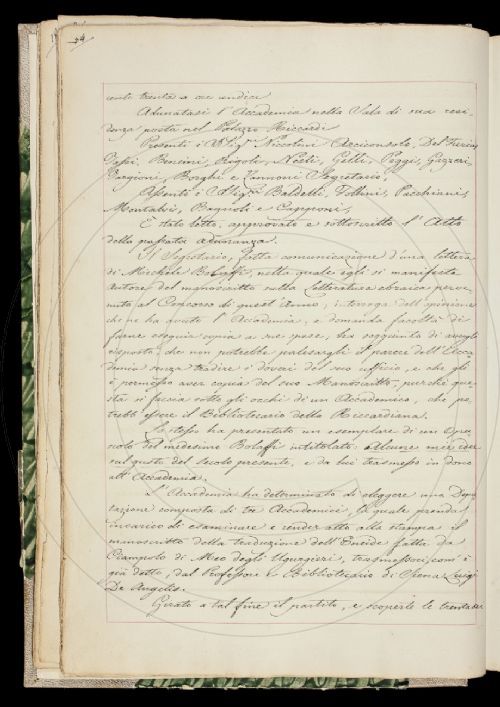 cento trenta a ore undici
Adunatasi l'Accademia nella Sala di sua resi-
denza posta nel Palazzo Riccardi
Presenti i SS.ri Niccolini Arciconsolo, Del Furia,
Fiacchi, Bencini, Rigoli, Nesti, Gelli, Poggi, Gazzeri,
Borghi e Zannoni Segretario,
Assenti i SS.ri Baldelli, Follini, Pucchiani,
Montalvi, Bagnoli e Capponi,
È stato letto, approvato e sottoscritto l'Atto
della passata adunanza.
Il Segretario, fatta comunicazione d'una lettera
di Michele Bolaffi, nella quale egli si manifesta
Autore del manoscritto sulla Letteratura ebraica perve-
nuto al Concorso di quest'Anno, interroga dell'opinione
che ne ha avuto l'Accademia, e domanda facoltà di
farne eseguir copia a sue spese, ha soggiunto di avergli
risposto, che non potrebbe palesargli il parere dell'Acca-
demia senza tradire i doveri del suo ufficio, e che gli
è permesso aver copia del suo Manoscritto, purchè que-
sta si faccia sotto gli occhi di un Accademico, che po-
trebb'essere il Bibliotecario della Riccardiana.
Lo stesso ha presentato un esemplare di un Opu-
scolo del medesimo Bolaffi intitolato: Alcune mie idee
sul gusto del Secolo presente, e da lui trasmesso in dono
all'Accademia.
L'Accademia ha determinato di eleggere una Depu-
tazione composta di tre Accademici, la quale prenda
incarico di esaminare e render atto alla stampa il
manoscritto della traduzione dell'Eneide fatta da
Ciampolo di Meo degli Ugurgieri, trasmessoci, com'è
già detto, dal Professore e Bibliotecario di Siena Luigi
De Angelis.
Girato a tal fine il partito, e scoperte le